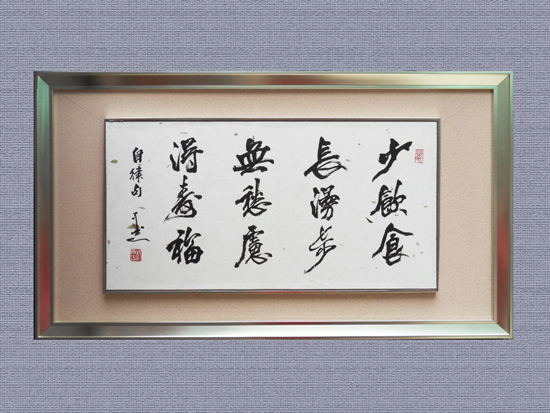 少飲食
長漫步
無愁慮
得壽福
自律句